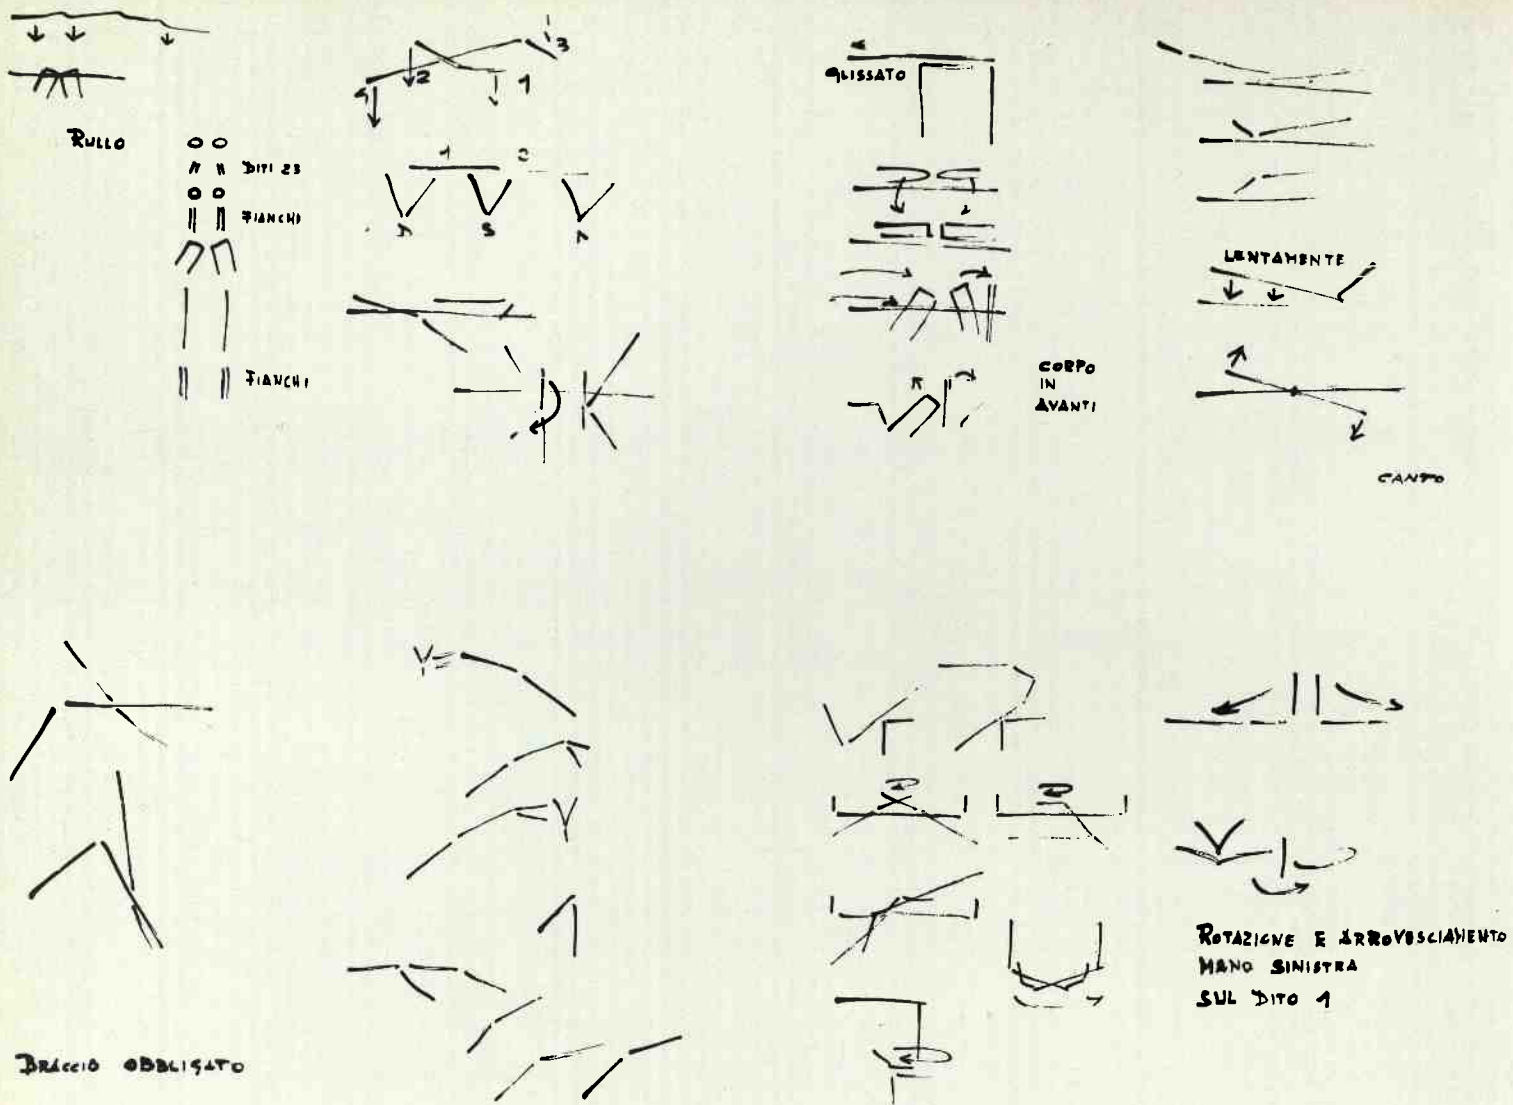 RULLO
DITI 23
FIANCHI
FIANCHI
3
2
1
4
1 2
S
GLISSATO
CORPO
IN
AVANTI
LENTAMENTE
CANTO
BRACCIO OBBLIGATO
ROTAZIONE E ARROVESCIAMENTO
MANO SINISTRA
SUL DITO 1